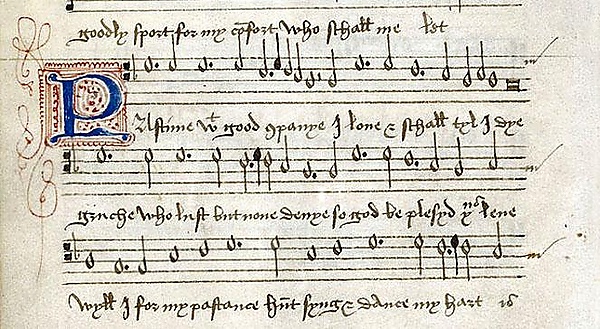 goodly sport for my cōfort who schall me let
PAstime wͭ good ꝯpanye I loue & schall tyl I dye
gruche who lust but none denye so god be plesyd yus leue
wyll I for my pastance hūt syng & dance my hart is